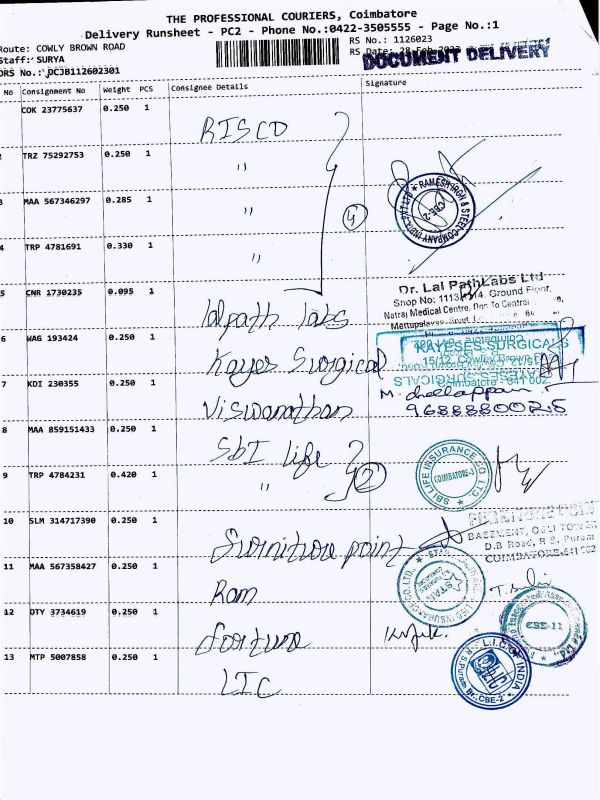 THE PROFESSIONAL COURIERS, Coimbatore
Delivery Runsheet - PC2 - Phone No.:0422-3505555 - Page No.:1
Route: COWLY BROWN ROAD
RS No.: 1126023
Staff: SURYA
RS Date: 28-Feb-2023
DOCUMENT DELIVERY
DRS No.: DCJB112602301
No Consignment No Weight PCS Consignee Details Signature
COK 23775637 0.250 1 RISCO
2 TRZ 75292753 0.250 1 "
3 MAA 567346297 0.285 1 "
RAMESH IRON & STEEL COMPANY INDIA PVT LTD
CBE-2
4
4 TRP 4781691 0.330 1 "
5 CNR 1730235 0.095 1 lalpath labs
Dr. Lal PathLabs Ltd
Shop No: 1113 Ground Floor,
Natraj Medical Centre, To Central
6 WAG 193424 0.250 1 Kayes Surgical
KAYESES SURGICALS
15/12, Cowley Brown
Coimbatore - 641 002
7 KDI 230355 0.250 1 Viswanathan
M. chellappan
9688880025
8 MAA 859151433 0.250 1 SbI life
9 TRP 4784231 0.420 1 "
2
SBI LIFE INSURANCE CO. LTD
COIMBATORE-3
10 SLM 314717390 0.250 1 Furniture point
BASEMENT, TOWER
D.B Road, R.S. Puram
COIMBATORE-641 002
11 MAA 567358427 0.250 1 Ram
STAR
INSURANCE CO. LTD.
12 DTY 3734619 0.250 1 fortune
CBE-11
13 MTP 5007858 0.250 1 LIC
L.I.C OF INDIA
R.S Puram Br., CBE-2